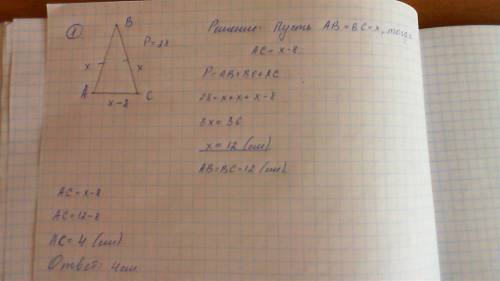 ① B
P=28
x x
A C
x-8
Решение: Пусть AB=BC=x, тогда
AC = x-8
P=AB+BC+AC
28=x+x+x-8
3x=36
x=12 (см)
AB=BC=12 (см)
AC=x-8
AC=12-8
AC=4 (см)
Ответ: 4см